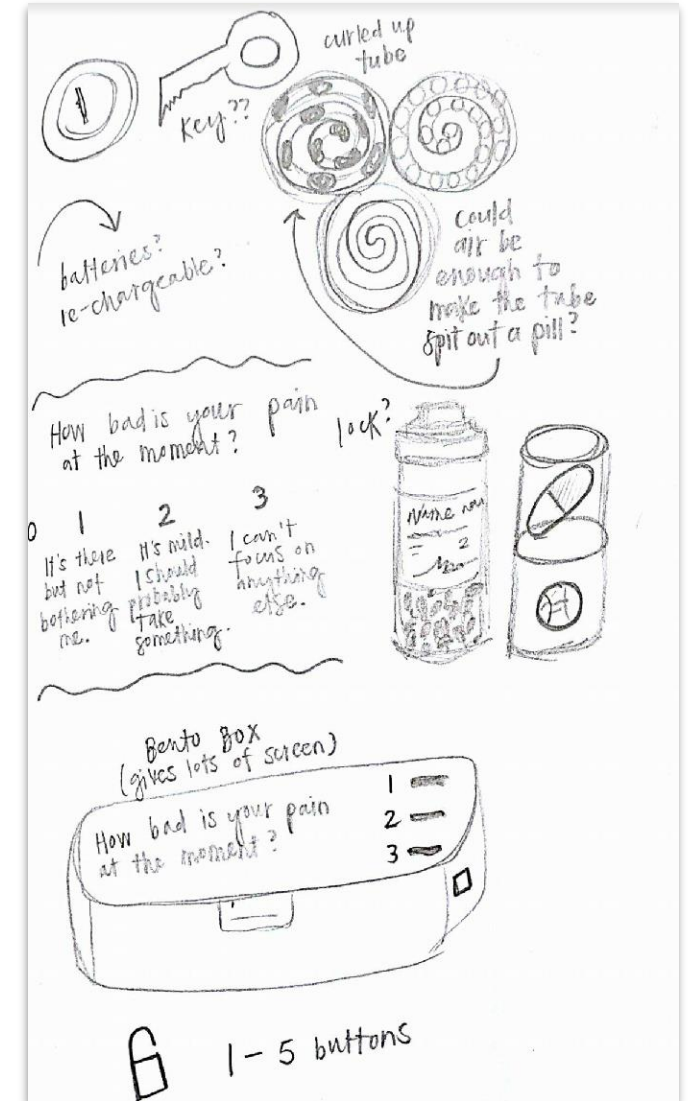 Key??
curled up
tube
batteries?
re-chargeable?
Could
air be
enough to
make the tube
spit out a pill?
How bad is your pain
at the moment?
0 1 2 3
It's there
but not
bothering
me.
It's mild.
I should
probably
take
something.
I can't
focus on
anything
else.
lock?
Name
2
Bento Box
(gives lots of screen)
How bad is your pain
at the moment?
1
2
3
1 - 5 buttons